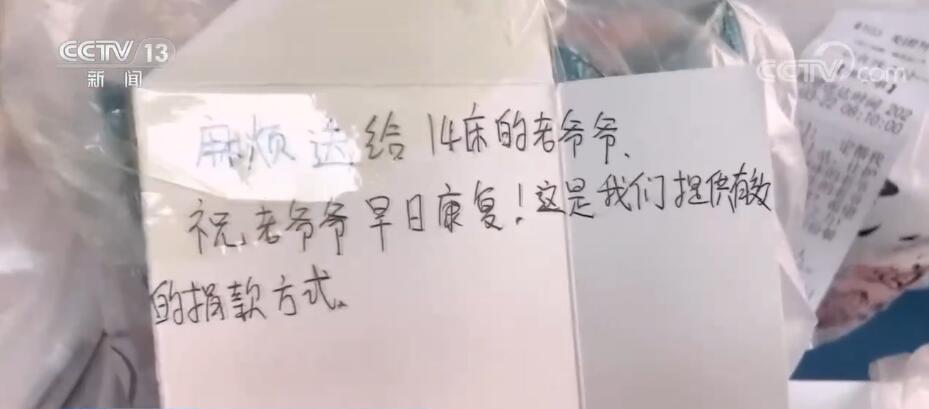 CCTV 13
新闻
CCTV.com
麻烦送给14床的老爷爷、
祝老爷爷早日康复！这是我们提供有效
的捐款方式。
08:10:00